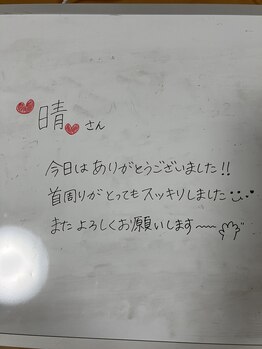 晴さん
今日は ありがとうございました!!
首周りが とっても スッキリしました
また よろしくお願いします〜〜